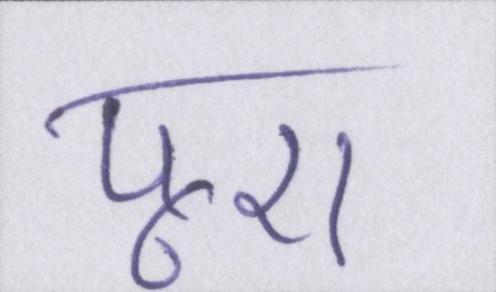 पूरा